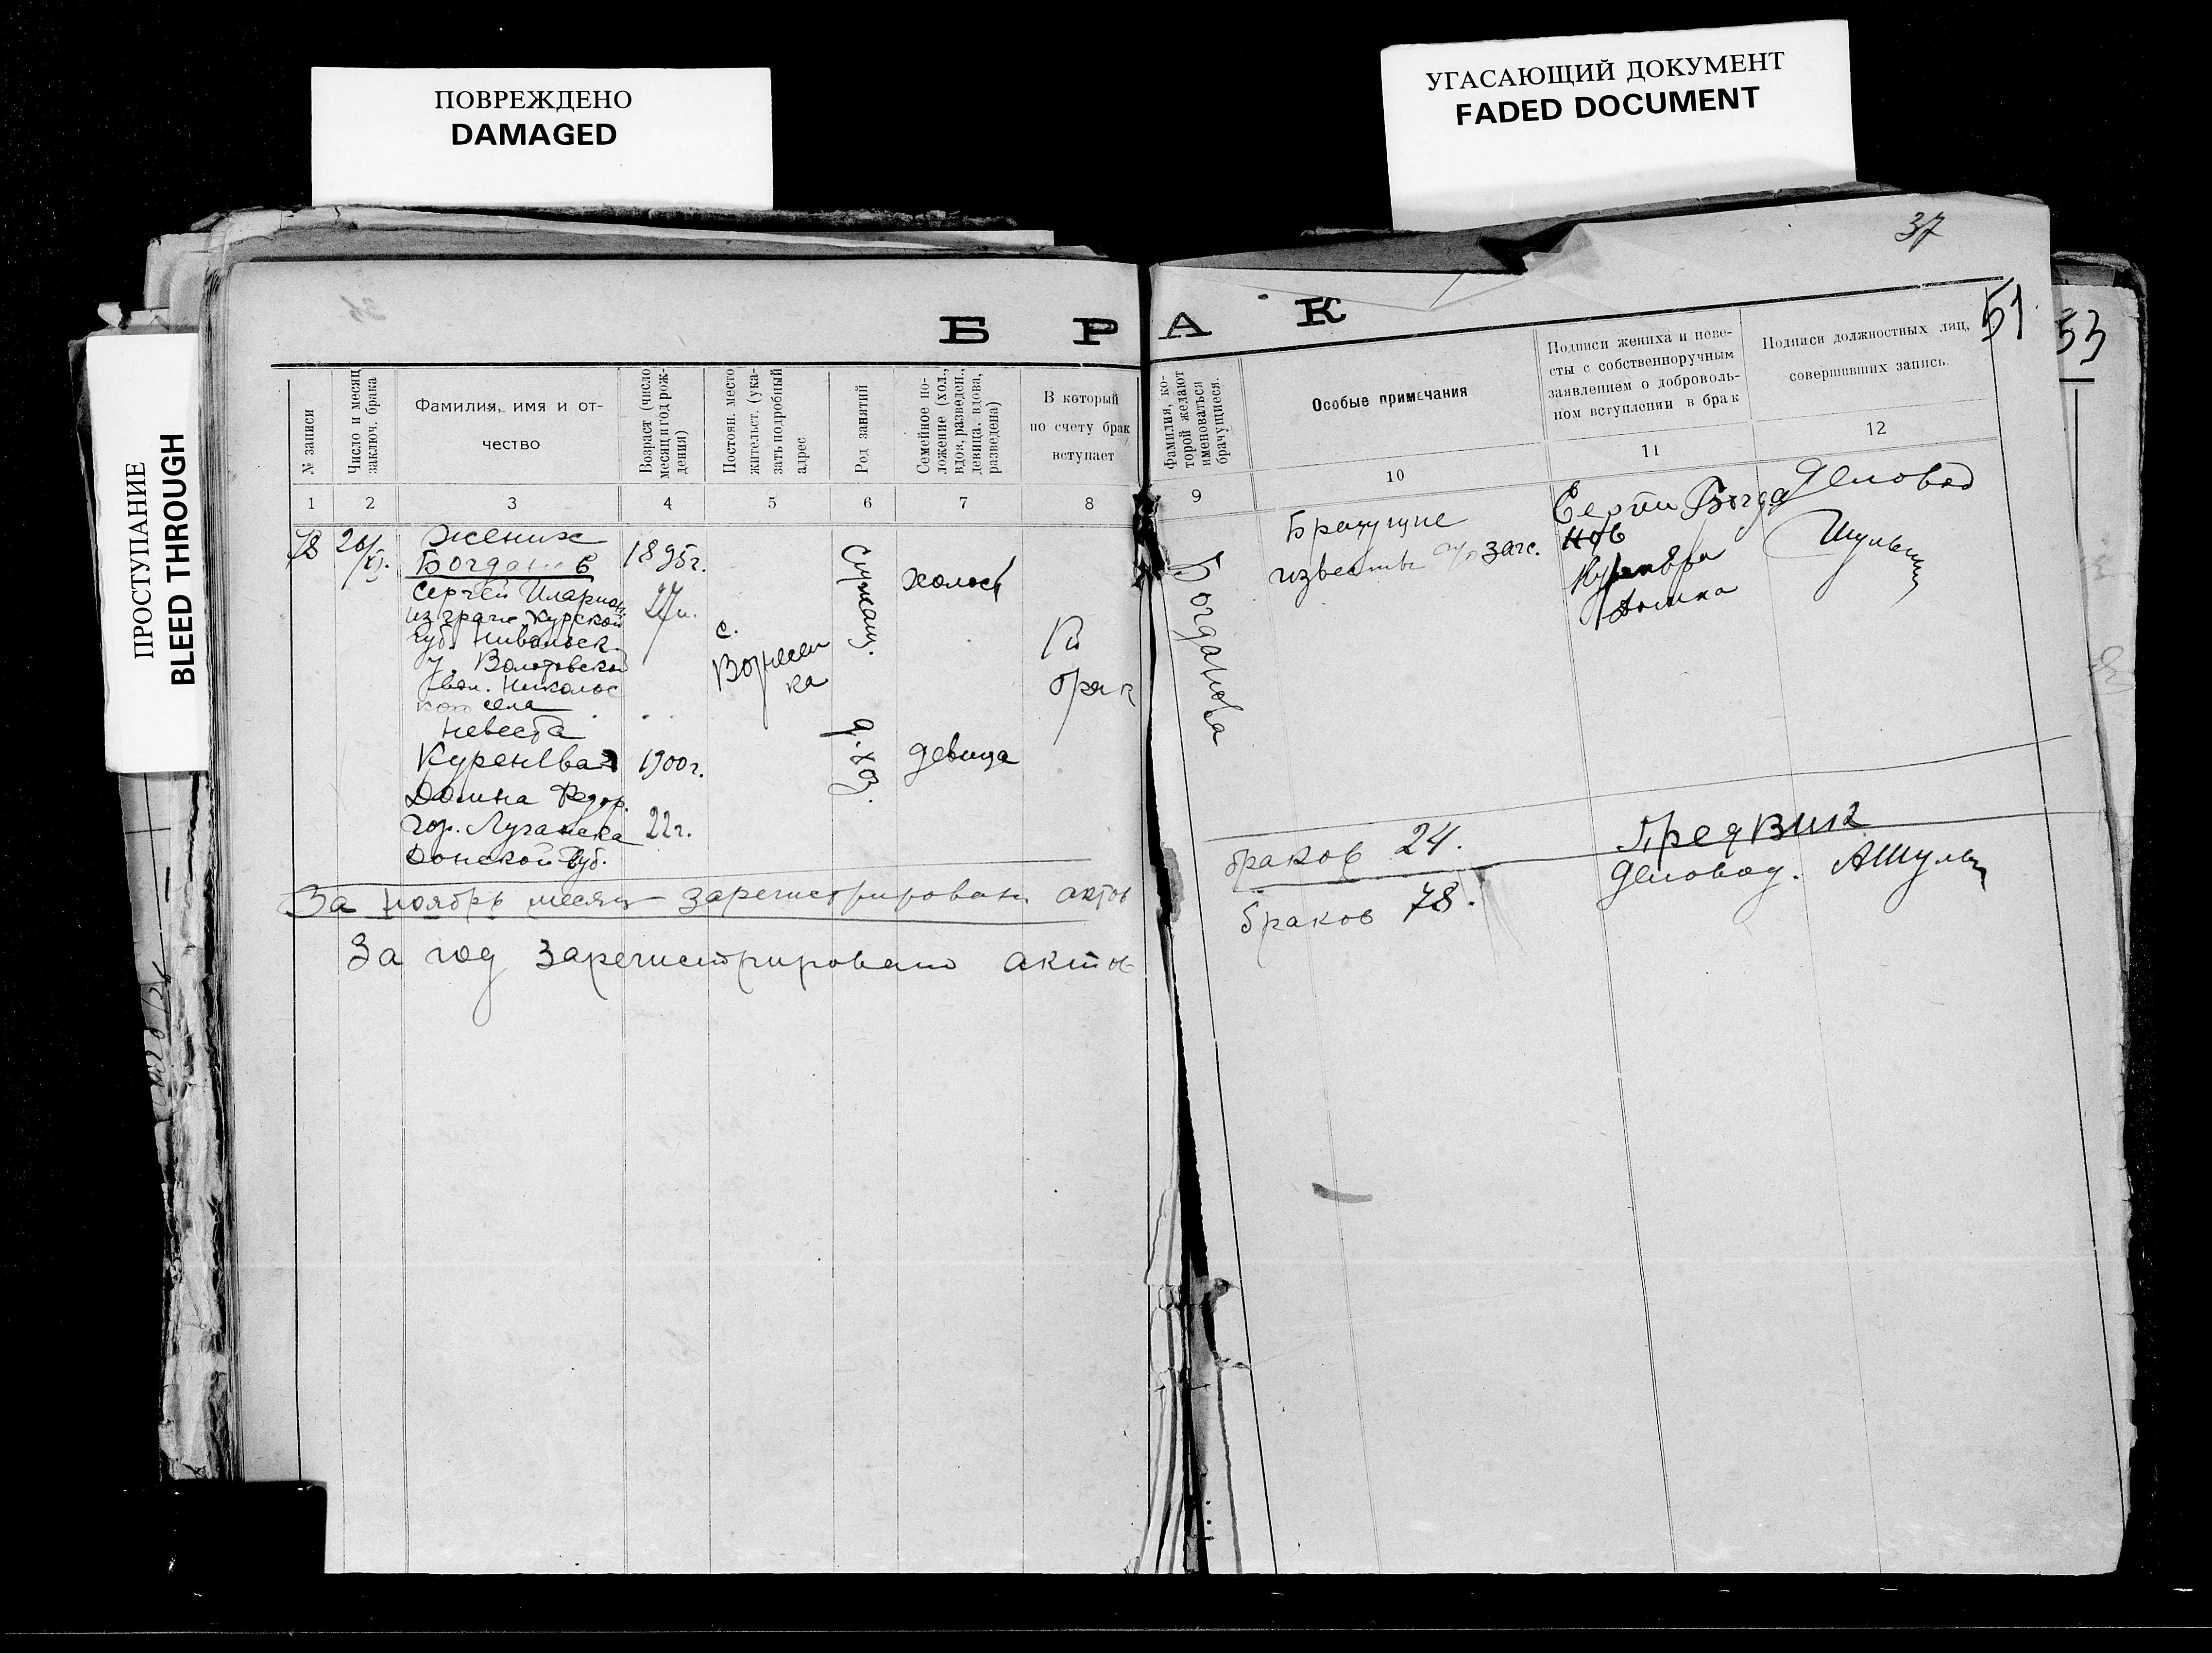 ПОВРЕЖДЕНО
DAMAGED
УГАСАЮЩИЙ ДОКУМЕНТ
FADED DOCUMENT
ПРОСТУПАНИЕ
BLEED THROUGH
37
51
53
Б Р А К
№ записи
Число и месяц
заключ. брака
Фамилия, имя и от-
чество
Возраст (число
месяц и год рож-
дения)
Постоян. место
жительст. (ука-
зать подробный
адрес
Род занятий
Семейное по-
ложение (хол.,
вдов. разведен.,
девица. вдова,
разведена)
В который
по счету брак
вступает
Фамилия, ко-
торой желают
именоваться
брачущиеся.
Особые примечания
Подписи жениха и неве-
сты с собственноручным
заявлением о доброволь-
ном вступлении в брак
Подписи должностных лиц,
совершивших запись.
1 2 3 4 5 6 7 8 9 10 11 12
78
20/XI.
Жених
Богданов
Сергей Иларион.
из граж. Курской
губ.
у.
вол.
села
Невеста
Куренева
Домна Федор.
гор. Луганска
Донской губ.
1895г.
27л.
1900г.
22г.
с.
Вознесен
ка
Служащ.
д. хоз.
холост
девица
брак
Богданова
Брачущие
известны загс.
Богда
нов
Домна
Деловод
За ноябрь месяц зарегистрировано актов
браков 24.
Пред ВИК
Деловод.
За год зарегистрировано актов
браков 78.